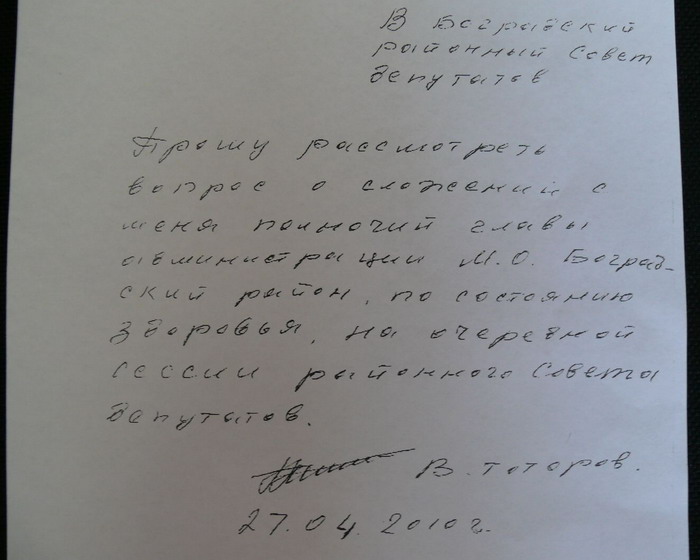 В Боградский
районный Совет
депутатов
Прошу рассмотреть
вопрос о сложений с
меня полночий главы
администрации М.О. Боград-
ский район, по состоянию
здоровья, на очередной
сессии районного Совета
депутатов.
В. Тотаров.
27.04.2010г.